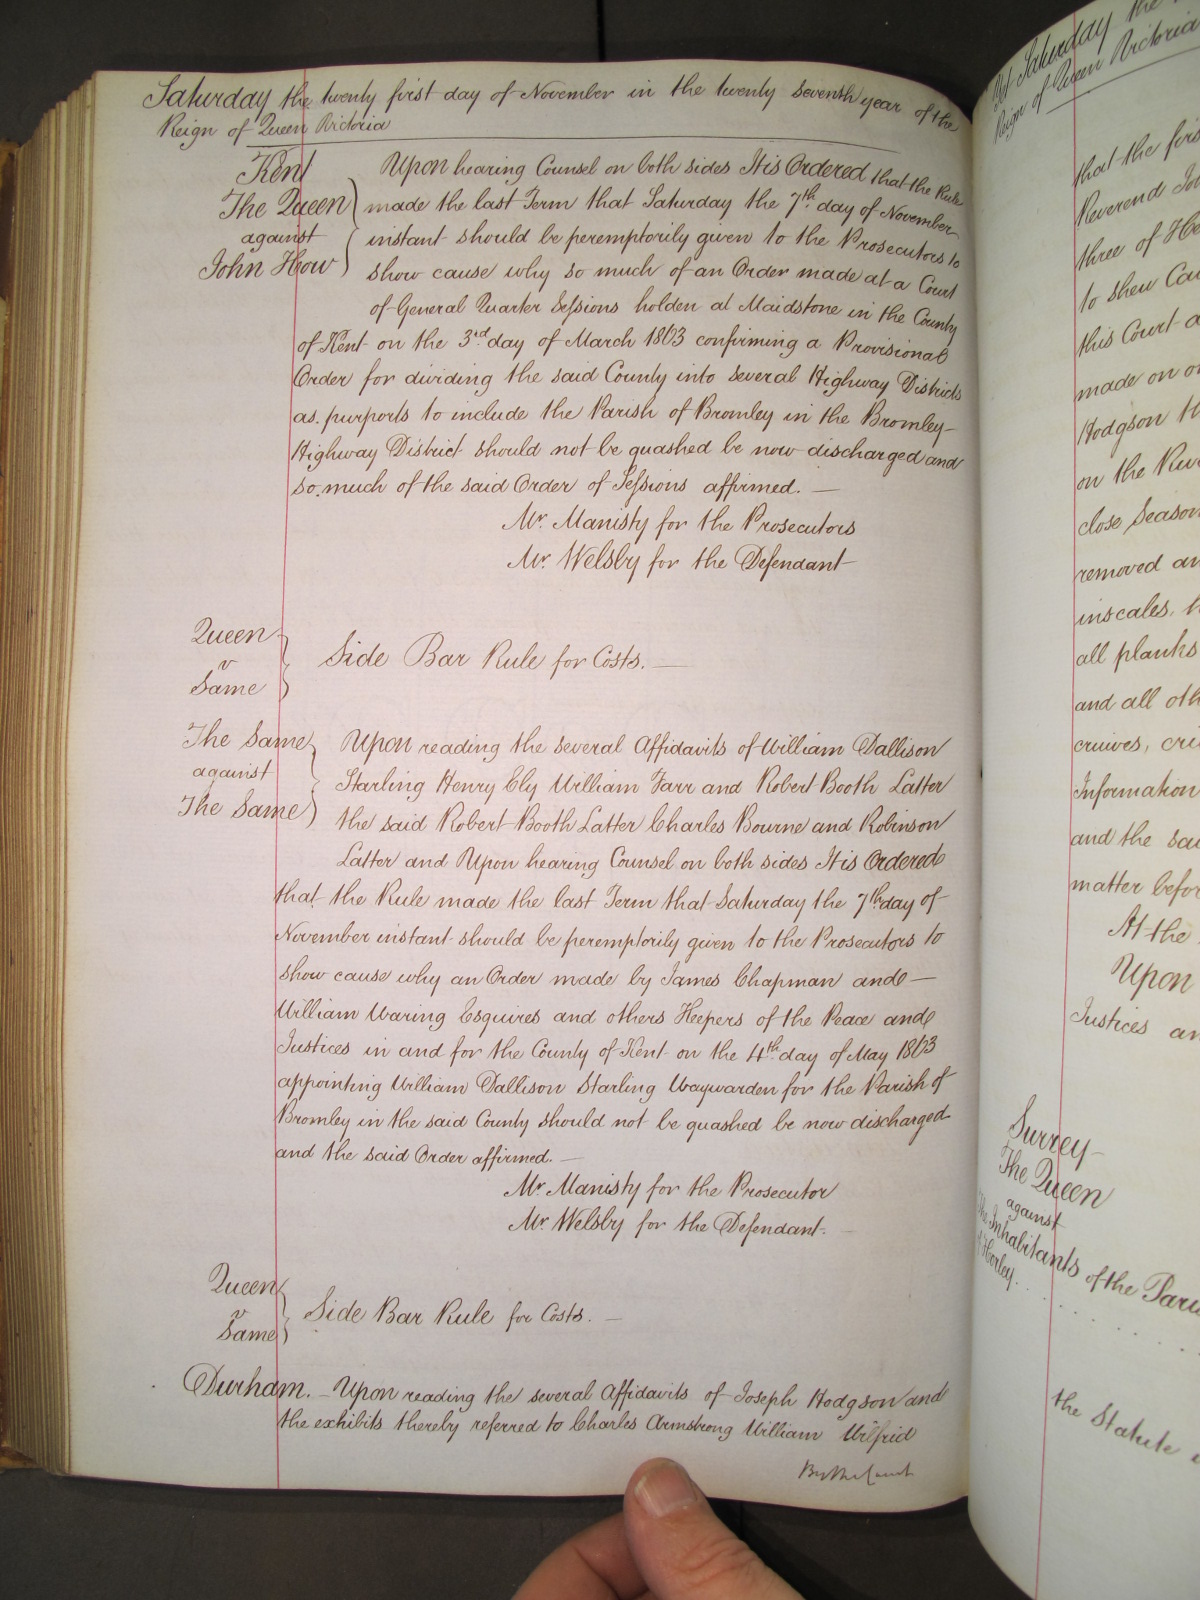 Saturday the twenty first day of November in the twenty seventh year of the
Reign of Queen Victoria
Kent
The Queen
against
John How
Upon hearing Counsel on both sides It is Ordered that the Rule
made the last Term that Saturday the 7th day of November
instant should be peremptorily given to the Prosecutors to
show cause why so much of an Order made at a Court
of General Quarter Sessions holden at Maidstone in the County
of Kent on the 3rd day of March 1863 confirming a Provisional
Order for dividing the said County into several Highway Districts
as purports to include the Parish of Bromley in the Bromley
Highway District should not be quashed be now discharged and
so much of the said Order of Sessions affirmed. —
Mr. Manisty for the Prosecutors
Mr. Welsby for the Defendant
Queen
v
Same
Side Bar Rule for Costs. —
The Same
against
The Same
Upon reading the several Affidavits of William Dallison
Starling Henry Ely William Farr and Robert Booth Latter
the said Robert Booth Latter Charles Bourne and Robinson
Latter and Upon hearing Counsel on both sides It is Ordered
that the Rule made the last Term that Saturday the 7th day of
November instant should be peremptorily given to the Prosecutors to
show cause why an Order made by James Chapman and —
William Waring Esquires and others Keepers of the Peace and
Justices in and for the County of Kent on the 4th day of May 1863
appointing William Dallison Starling Waywarden for the Parish of
Bromley in the said County should not be quashed be now discharged
and the said Order affirmed. —
Mr. Manisty for the Prosecutor
Mr. Welsby for the Defendant. —
Queen
v
Same
Side Bar Rule for Costs. —
Durham. — Upon reading the several Affidavits of Joseph Hodgson and
the exhibits thereby referred to Charles Armstrong William Wilfrid
By the Court
Saturday the
Reign of Queen Victoria
that the firs
Reverend Jo
three of He
to shew Cau
this Court
made on or
Hodgson th
on the Riv
close Season
removed an
inscales,
all planks
and all oth
cruives, cri
Information
and the sai
matter befor
At the
Upon
Justices an
Surrey
The Queen
against
Inhabitants of the Pari
Horley.
the Statute